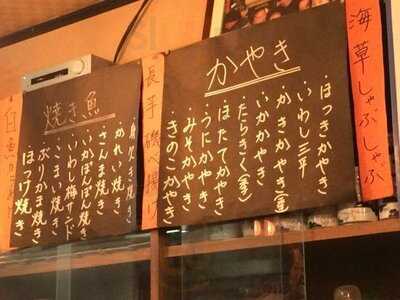 海草しゃぶしゃぶ
かやき
・ほっきかやき
・いわし三平
・かきかやき(ホ)
・いかかやき
・たらきく(季)
・ほたてかやき
・うにかやき
・みそかやき
・きのこかやき
長芋磯べ揚げ
焼き魚
・身欠き焼き
・かれい焼き
・さんま焼き
・いかぽんぽん焼き
・いわし梅サンド
・こまい焼き
・ぶりかま焼き
ほっけ焼き